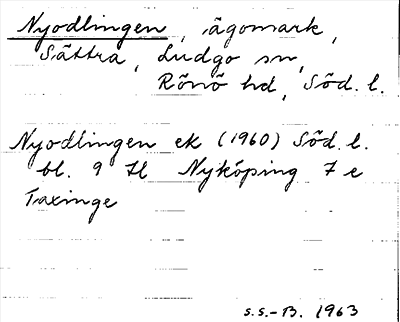 Nyodlingen, ägomark,
Sättra, Ludgo sn,
Rönö hd, Söd. l.
Nyodlingen ek (1960) Söd. l.
bl. 9 H Nyköping 7 e
Taxinge
S.S.-B. 1963